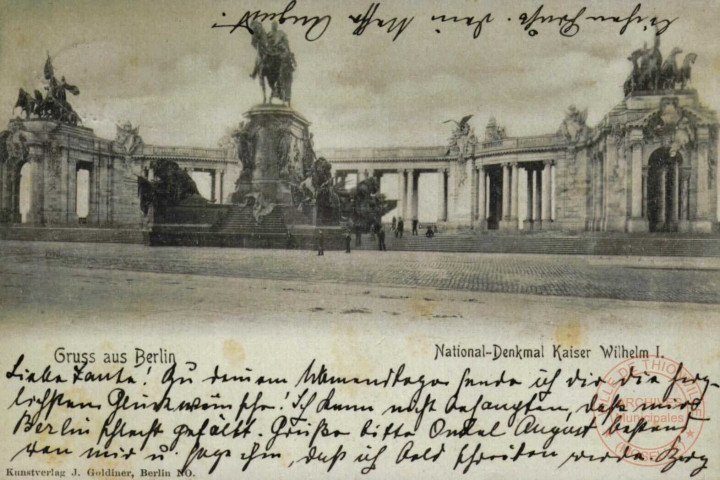 Gruss aus Berlin
National-Denkmal Kaiser Wilhelm I.
Liebe Tante! Zu deinem Namenstage sende ich dir die herz-
lichsten Glückwünsche! Ich kann nicht behaupten, daß
Berlin schlecht gefällt. Grüße bitte Onkel August bestens
von mir u. sage ihm, daß ich bald schreiben werde. Herz
lichen Gruß. Dein Neffe August
Kunstverlag J. Goldiner, Berlin NO.
VILLE DE THIONVILLE
ARCHIVES
Municipales